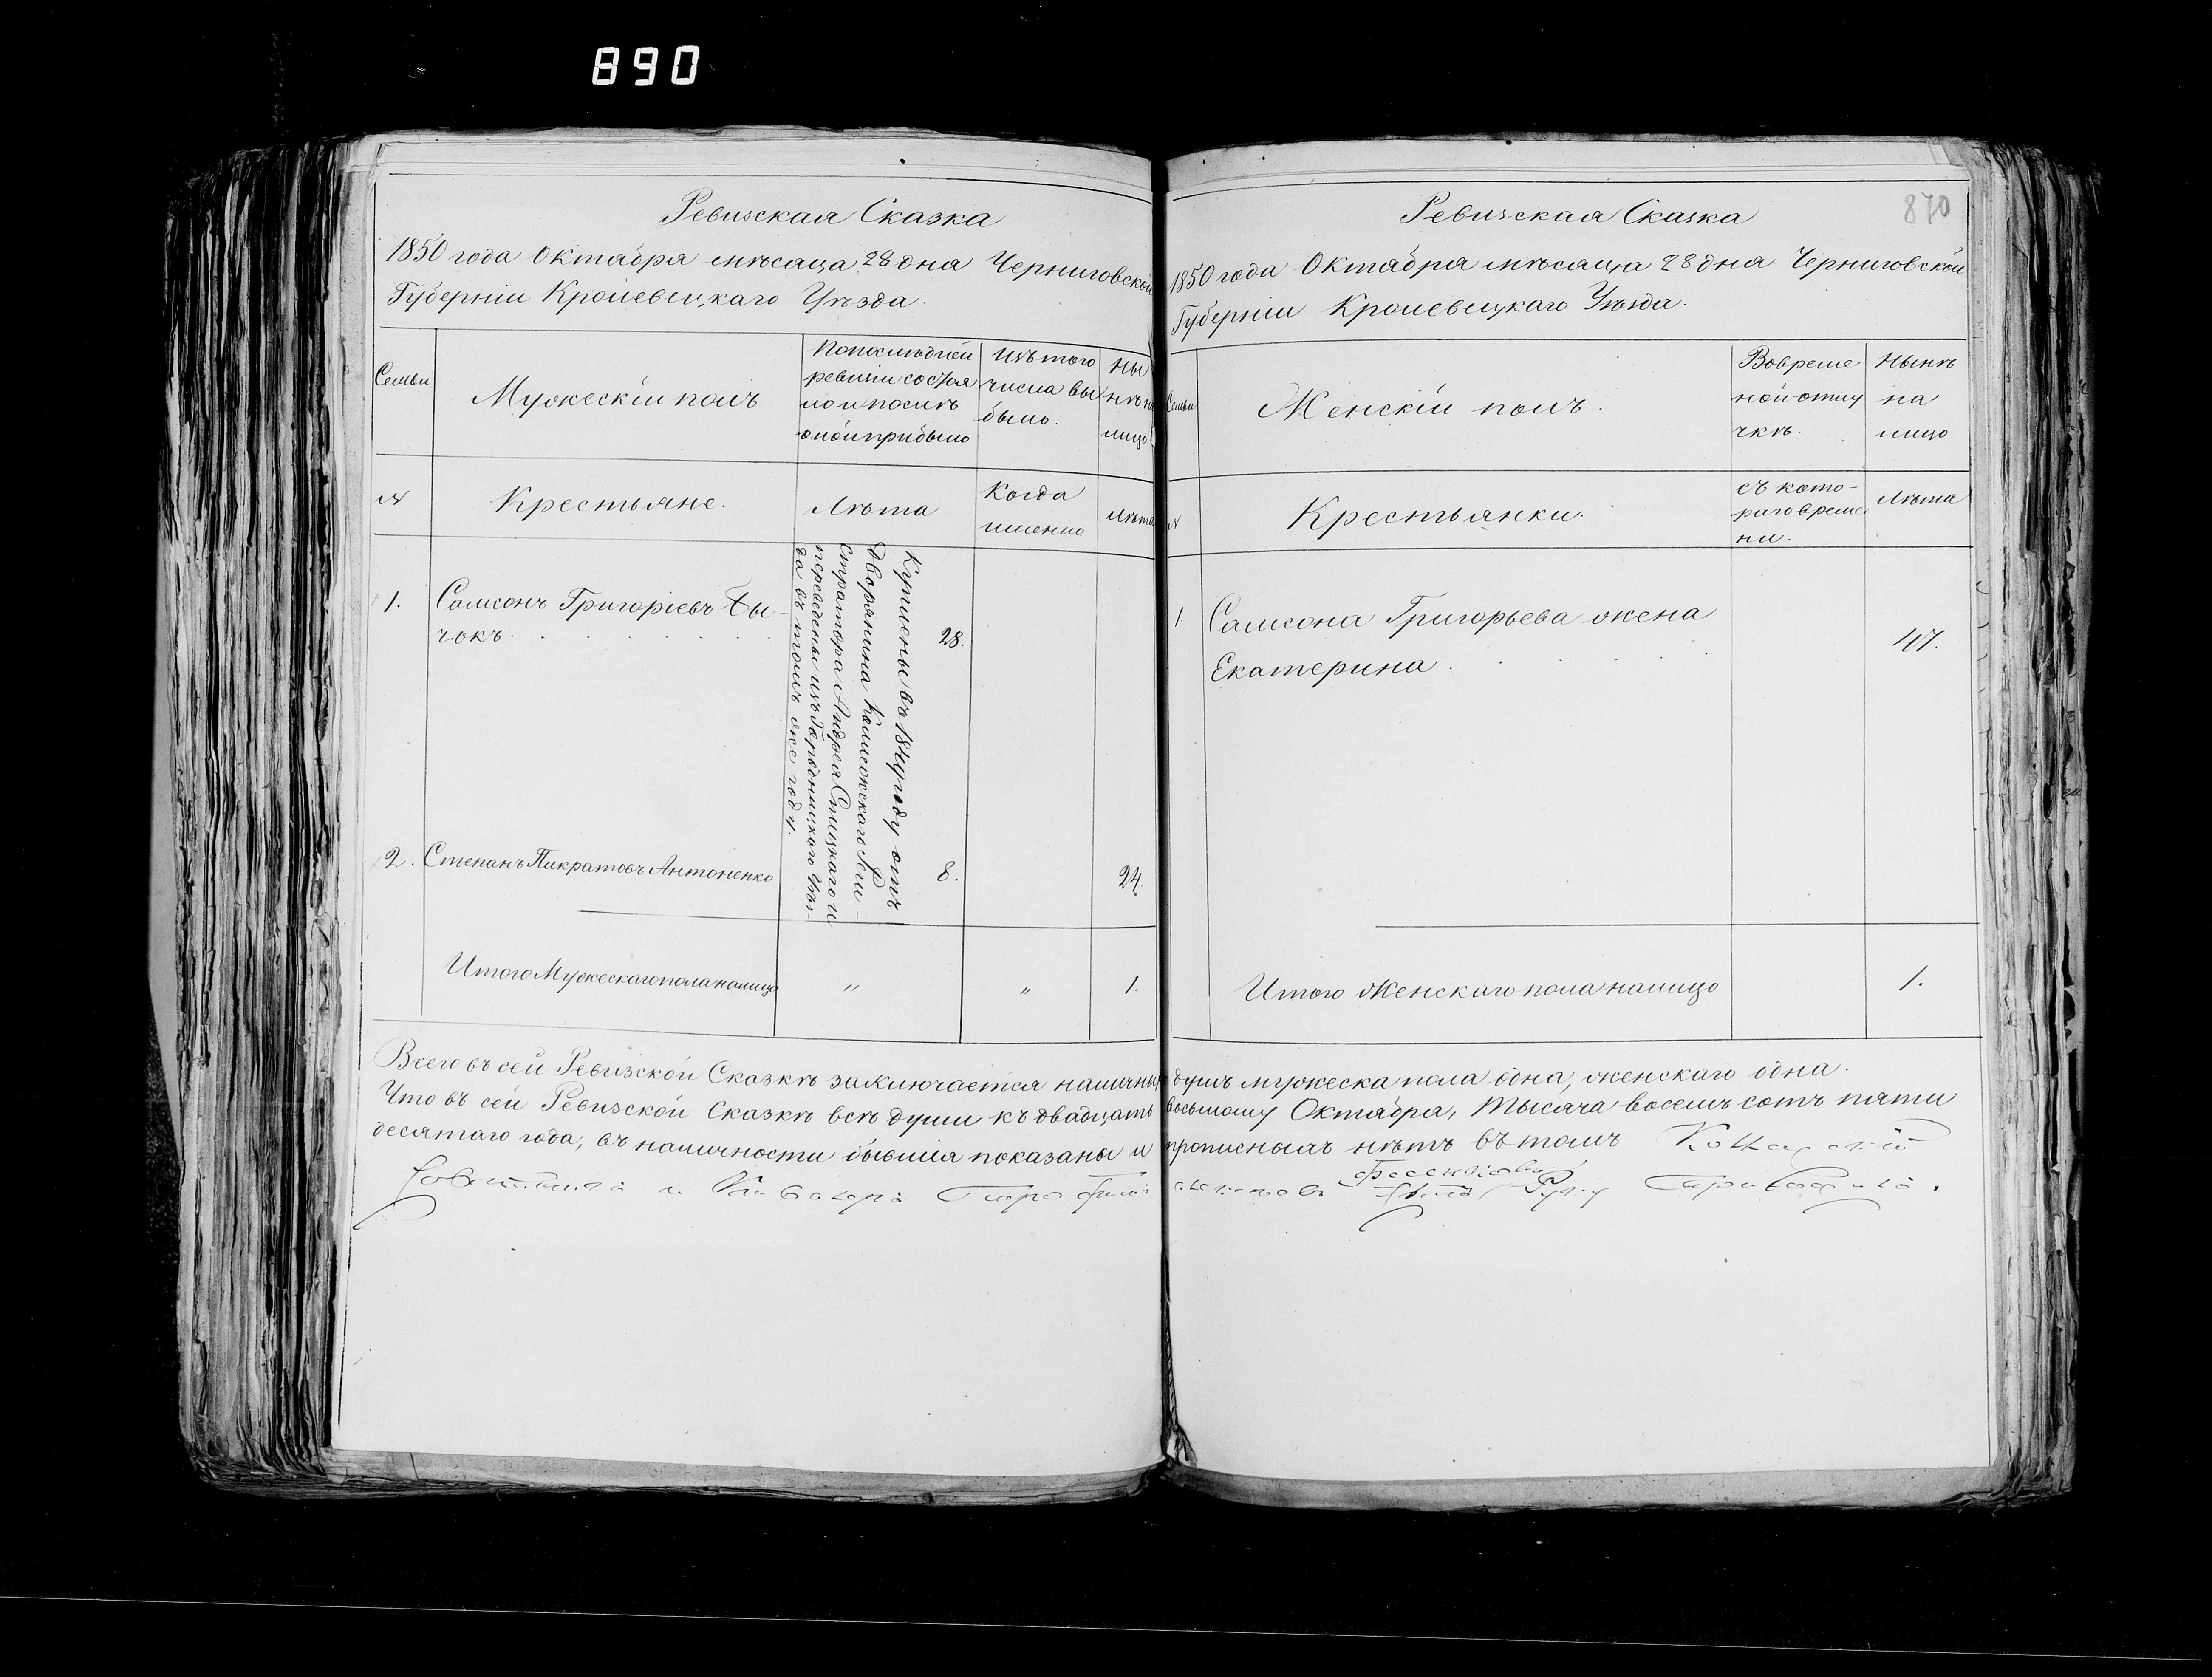 890
Ревизская Сказка
1850 года Октября мѣсяца 28 дня Черниговской
Губерніи Кролевецкаго Уѣзда.
Семьи
Мужескій полъ
По послѣдней
ревизіи состоя
ло и послѣ
оной прибыло
Изъ того
числа вы
было.
Ны
нѣ на
лицо
№
Крестьяне.
Лѣта
Когда
именно
Лѣта
1.
Самсонъ Григоріевъ Бы
чокъ.
28.
Куплены въ 184 году отъ
Дворянина Коллежскаго Реги-
стратора Андрея Спицкаго и
переведены изъ Городницкаго Уѣз-
да въ томъ же году.
2.
Степанъ Панкратовъ Антоненко
8.
24.
Итого Мужескаго пола налицо
"
"
1.
870
Ревизская Сказка
1850 года Октября мѣсяца 28 дня Черниговской
Губерніи Кролевецкаго Уѣзда.
Семьи
Женскій полъ.
Во време
ной отлу
чкѣ.
Нынѣ
на
лицо
№
Крестьянки.
съ кото-
раго време
ни.
Лѣта
1.
Самсона Григорьева жена
Екатерина.
47.
Итого Женскаго пола налицо
1.
Всего въ сей Ревизской Сказкѣ заключается наличныхъ душъ мужеска пола одна, женскаго одна.
Что въ сей Ревизской Сказкѣ всѣ души къ двадцать восьмому Октября, тысяча восемь сотъ пяти
десятаго года, въ наличности бывшія показаны и прописныхъ нѣтъ въ томъ
и Кавалера